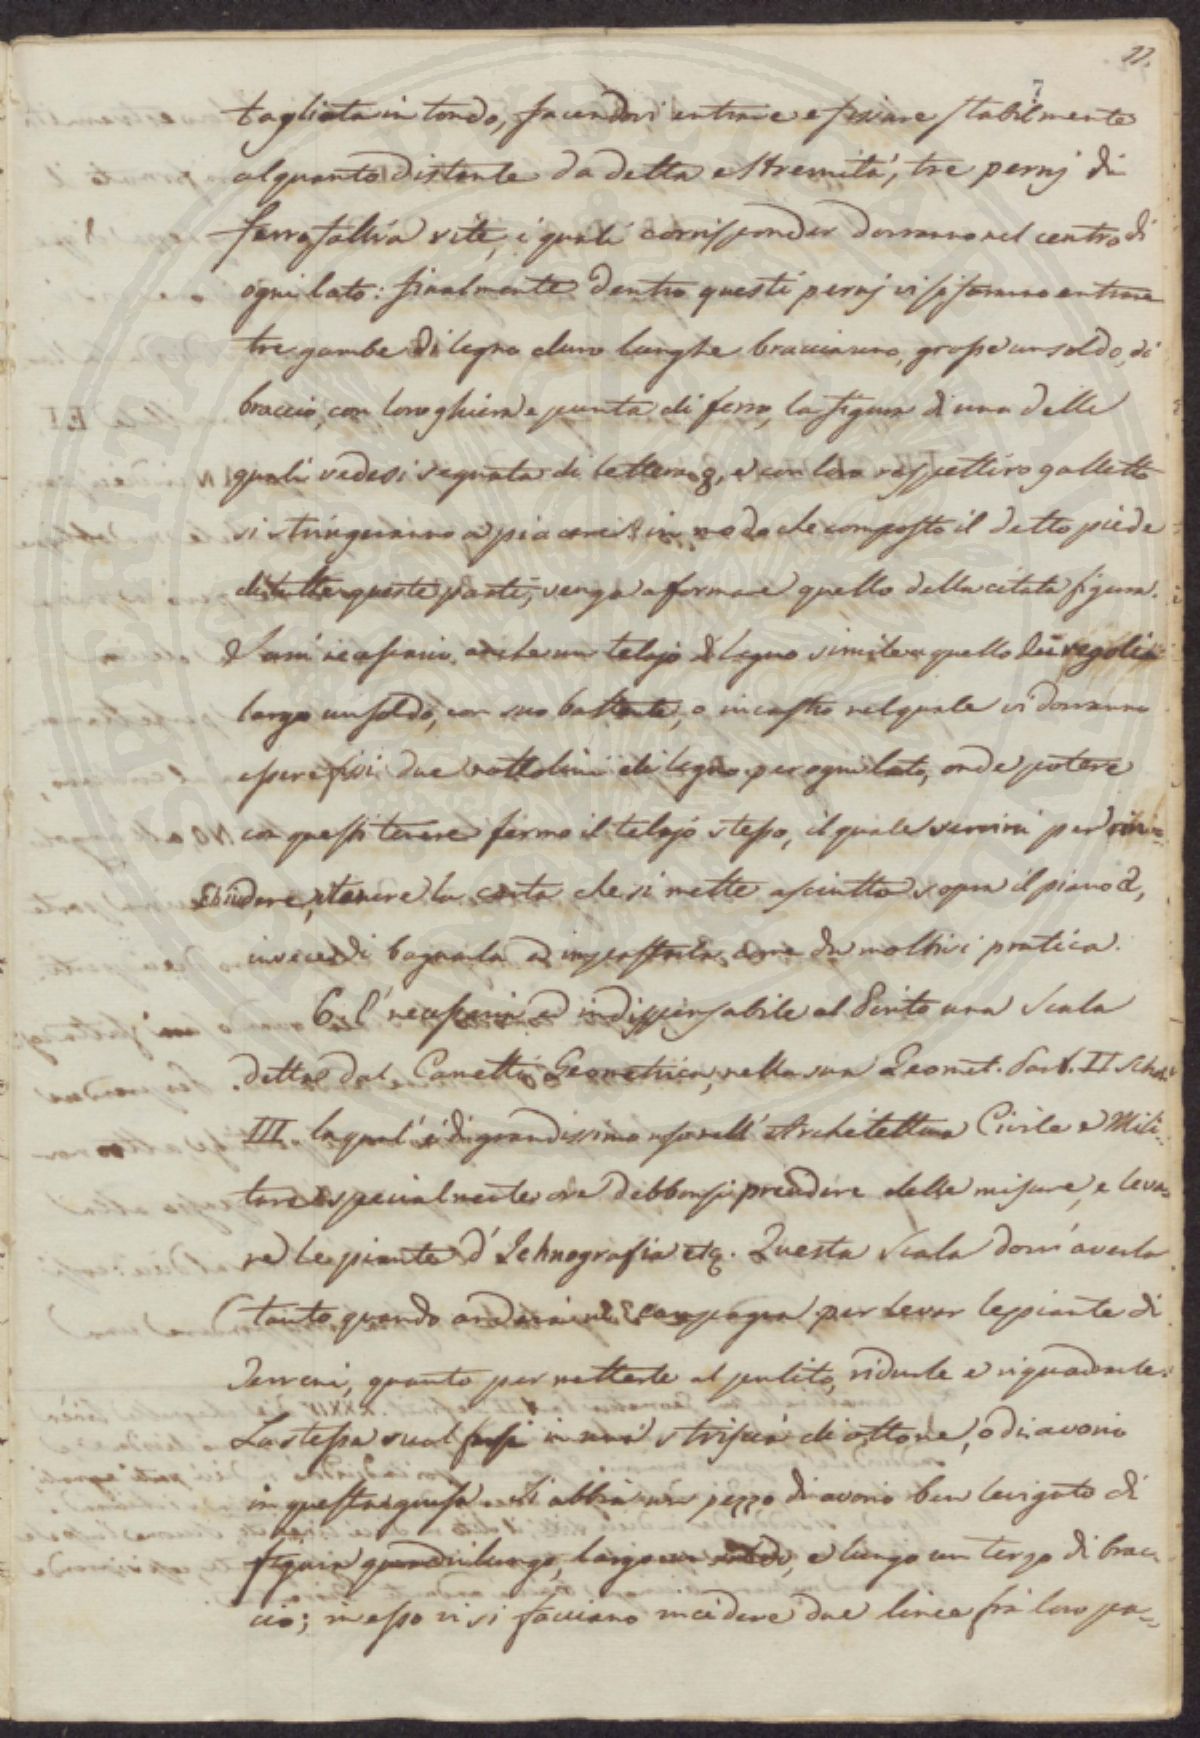 11.
7
tagliata in tondo, facendovi entrare e fissare stabilmente
alquanto distante da detta estremità, tre pernj di
ferro fatti a vite, i quali corrisponder dovranno nel centro di
ogni lato: finalmente dentro questi pernj vi si faranno entrare
tre gambe di legno duro lunghe braccia uno, grosse un soldo, di
braccio, con loro ghiera e punta di ferro, la figura di una delle
quali vedesi segnata di lettera g, e con loro respettivo galletto
si stringeranno a piacere in modo che composto il detto piede
di tutte queste parti, venga a formare quello della citata figura.
Sarà necessario anche un telajo di legno simile a quello dei regoli
largo un soldo, con suo battente, o incastro nel quale vi dovranno
essere fissi due nottolini di legno per ogni lato, onde potere
con questi tenere fermo il telajo stesso, il quale servirà per rin-
chiudere, e tenere la carta che si mette asciutta sopra il piano a,
invece di bagnarla ed impastarla, come da molti si pratica.
6. È necessaria ed indispensabile al Perito una Scala
detta dal Canetti Geometrica, nella sua Geomet. Part. II Sche.
III. la qual'è di grandissimo uso nell'Architettura Civile e Mili-
tare especialmente ove debbonsi prendere delle misure, e leva-
re le piante d'Ichnografia etc. Questa Scala dovrà averla
tanto quando anderà in campagna per levar le piante di
Terreni, quanto per metterle al pulito, ridurle e riquadrarle.
La stessa suol farsi in una striscia di ottone, o di avorio
in questa guisa. Si abbia un pezzo di avorio ben levigato di
figura quadrilunga, largo un soldo, e lungo un terzo di brac-
cio; in esso vi si facciano incidere due linee frà loro pa-